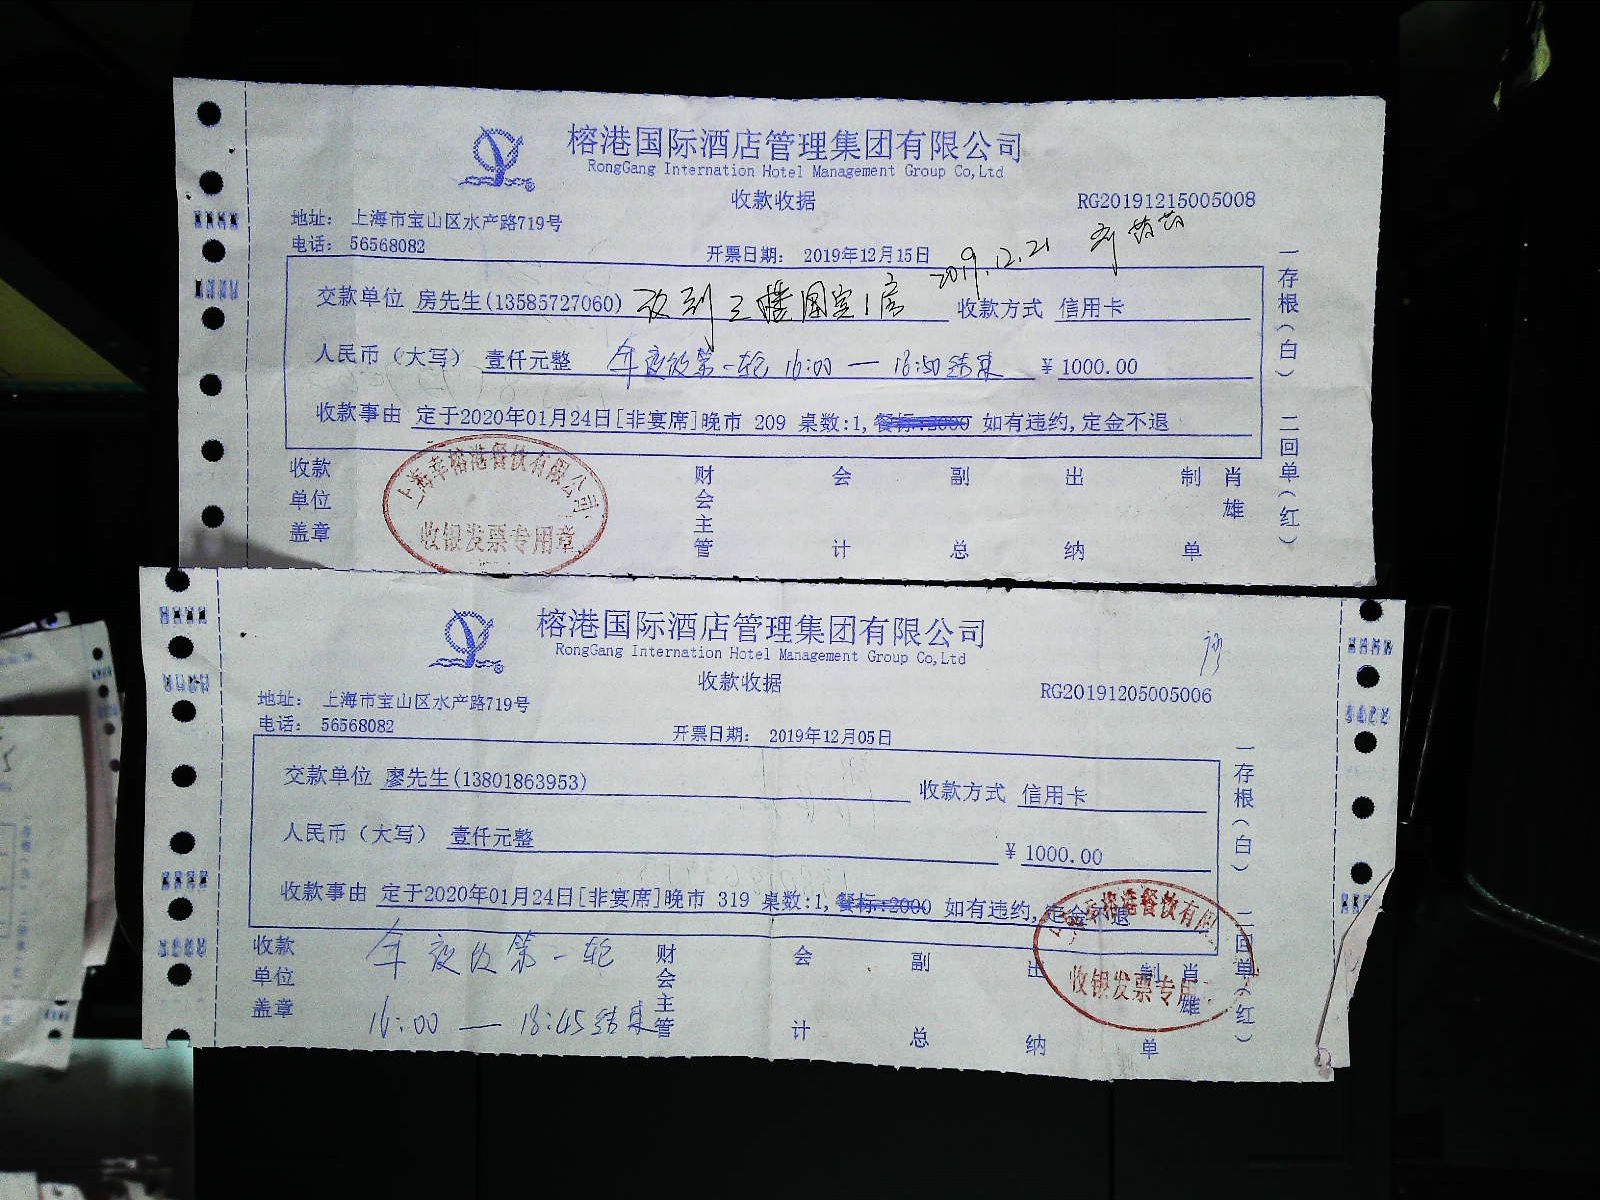 榕港国际酒店管理集团有限公司
RongGang Internation Hotel Management Group Co,Ltd
收款收据
RG20191215005008
地址: 上海市宝山区水产路719号
电话: 56568082
开票日期: 2019年12月15日
2019.12.21
交款单位 房先生(13585727060) 改到三楼国宾1席
收款方式 信用卡
人民币(大写) 壹仟元整 年夜饭第一轮 16:00—18:50结束 ¥1000.00
收款事由 定于2020年01月24日[非宴席]晚市 209 桌数:1,餐标:2000 如有违约,定金不退
收款单位盖章
财会主管
会计
副总
出纳
制单
肖雄
一存根(白) 二回单(红)
上海幸榕港餐饮有限公司
收银发票专用章
榕港国际酒店管理集团有限公司
RongGang Internation Hotel Management Group Co,Ltd
收款收据
RG20191205005006
地址: 上海市宝山区水产路719号
电话: 56568082
开票日期: 2019年12月05日
交款单位 廖先生(13801863953)
收款方式 信用卡
人民币(大写) 壹仟元整 ¥1000.00
收款事由 定于2020年01月24日[非宴席]晚市 319 桌数:1,餐标:2000 如有违约,定金不退
收款单位盖章
年夜饭第一轮
16:00—18:45结束
财会主管
会计
副总
出纳
制单
肖雄
一存根(白) 二回单(红)
幸榕港餐饮有限
收银发票专用